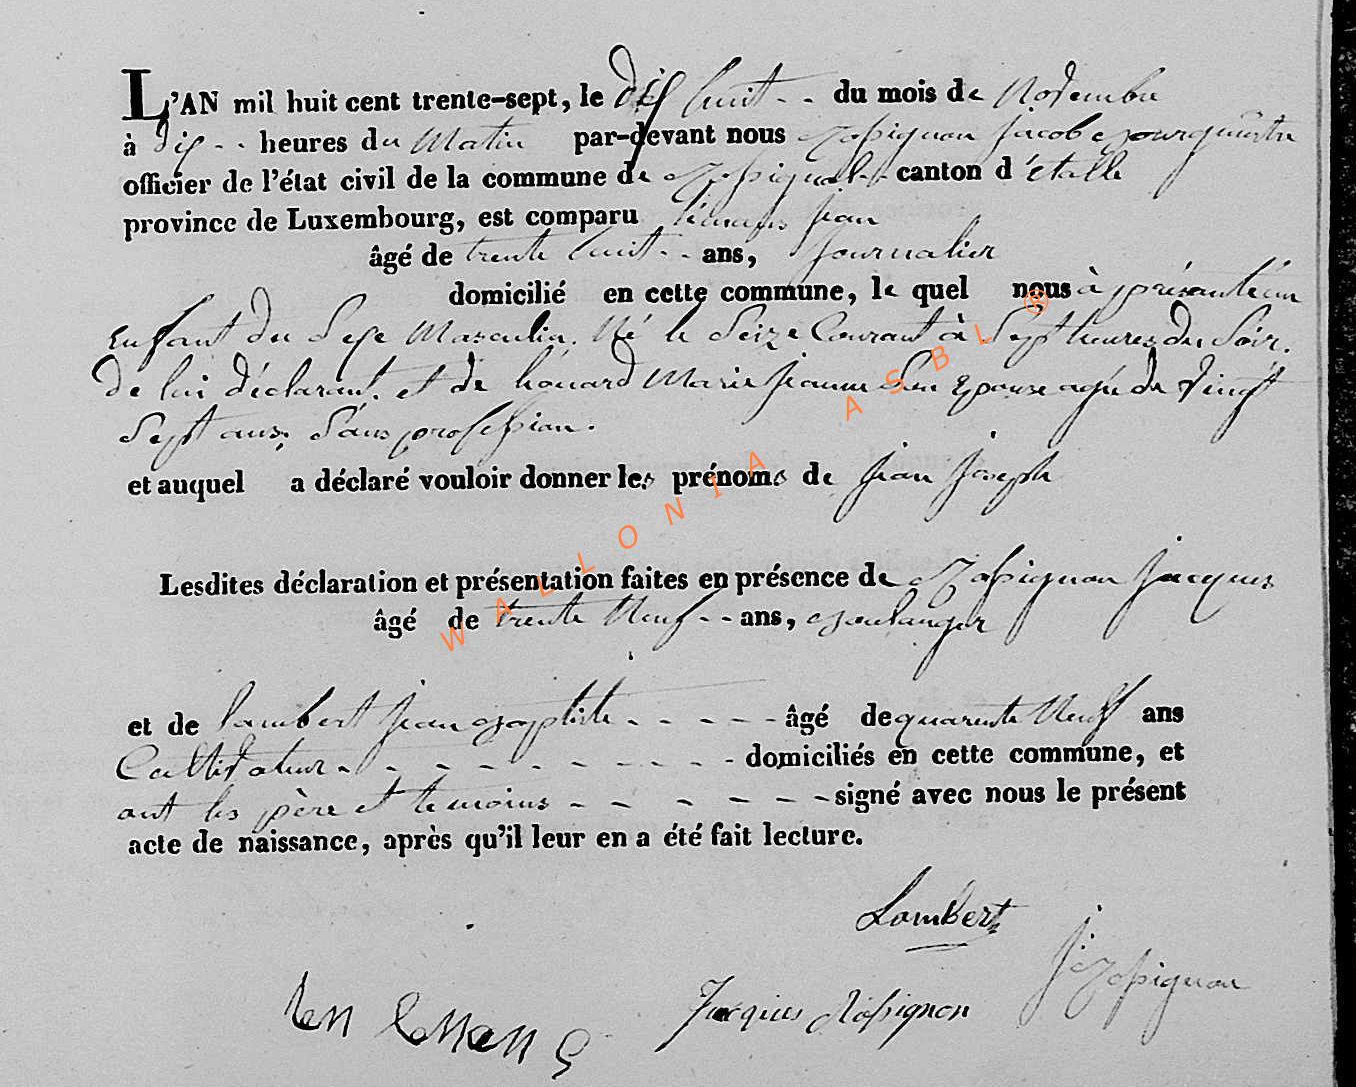 L'AN mil huit cent trente-sept, le dix huit - - du mois de Novembre
à dix - - heures du Matin par-devant nous Rossignon Jacob Bourguemestre
officier de l'état civil de la commune de canton d'étalle
province de Luxembourg, est comparu Jean
âgé de trente huit - - ans, Journalier
domicilié en cette commune, le quel nous à présenté un
Enfant du Sexe Masculin. Né le Seize Courant à Sept heures du Soir.
de lui déclarant. et de houard Marie Jeanne Son Epouse agée de Vingt
Sept ans, Sans profession.
et auquel a déclaré vouloir donner les prénoms de Jean Joseph
Lesdites déclaration et présentation faites en présence de Rossignon Jacques
âgé de trente Neuf - - ans, Boulanger
et de Lambert Jean Baptiste - - - - - âgé de quarente Neuf ans
Cultivateur - - - - - - - - - domiciliés en cette commune, et
ont les père et temoins - - - - - - signé avec nous le présent
acte de naissance, après qu'il leur en a été fait lecture.
Lambert
J Rossignon
Jacques Rossignon
WALLONIA ASBL ®